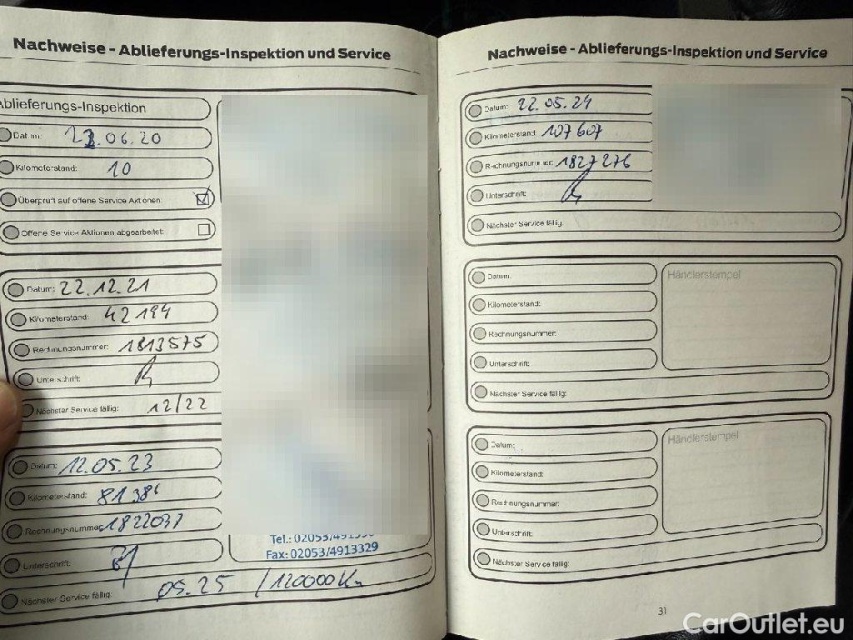 Nachweise - Ablieferungs-Inspektion und Service
Ablieferungs-Inspektion
Datum: 23.06.20
Kilometerstand: 10
Überprüft auf offene Service Aktionen
Offene Service Aktionen abgearbeitet:
Datum: 22.12.21
Kilometerstand: 42194
Rechnungsnummer: 1813575
Unterschrift:
Nächster Service fällig: 12/22
Datum: 12.05.23
Kilometerstand: 81386
Rechnungsnummer: 1822037
Unterschrift:
Nächster Service fällig: 05.25 / 120000 Km
Tel.: 02053/491
Fax: 02053/4913329
Nachweise - Ablieferungs-Inspektion und Service
Datum: 22.05.24
Kilometerstand: 107607
Rechnungsnummer: 1827276
Unterschrift:
Nächster Service fällig:
Datum:
Händlerstempel
Kilometerstand:
Rechnungsnummer:
Unterschrift:
Nächster Service fällig:
Datum:
Händlerstempel
Kilometerstand:
Rechnungsnummer:
Unterschrift:
Nächster Service fällig:
31
CarOutlet.eu